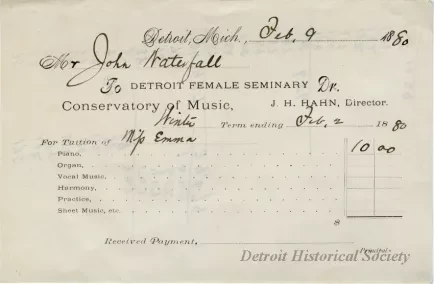 Detroit, Mich. Feb. 9 1880
Mr John Waterfall
To DETROIT FEMALE SEMINARY Dr.
Conservatory of Music, J. H. HAHN, Director.
Winter Term ending Feb. 2 1880
For Tuition of Miss Emma
Piano, 10 00
Organ,
Vocal Music,
Harmony,
Practice,
Sheet Music, etc.
$
Received Payment,
Principal.
Detroit Historical Society